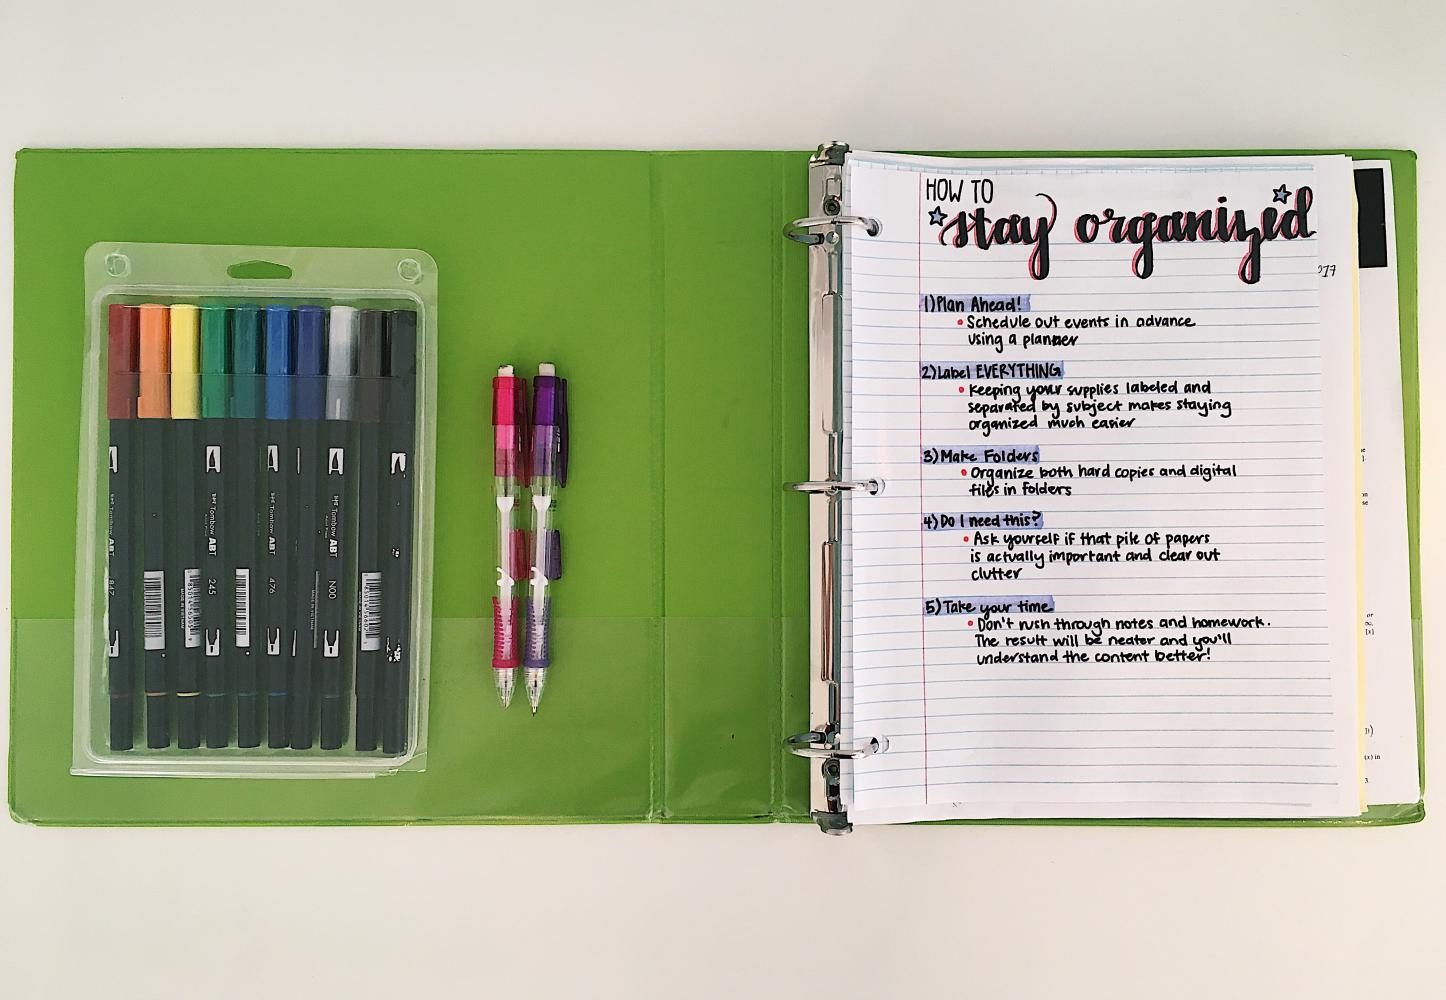 HOW TO
stay organized
017
1) Plan Ahead!
• Schedule out events in advance
using a planner
2) Label EVERYTHING
• Keeping your supplies labeled and
separated by subject makes staying
organized much easier
3) Make Folders
• Organize both hard copies and digital
files in folders
4) Do I need this?
• Ask yourself if that pile of papers
is actually important and clear out
clutter
5) Take your time
• Don't rush through notes and homework.
The result will be neater and you'll
understand the content better!
Tombow ABT
847
Tombow ABT
245
Tombow ABT
476
Tombow ABT
N00
MADE IN VIETNAM
(x) in
3